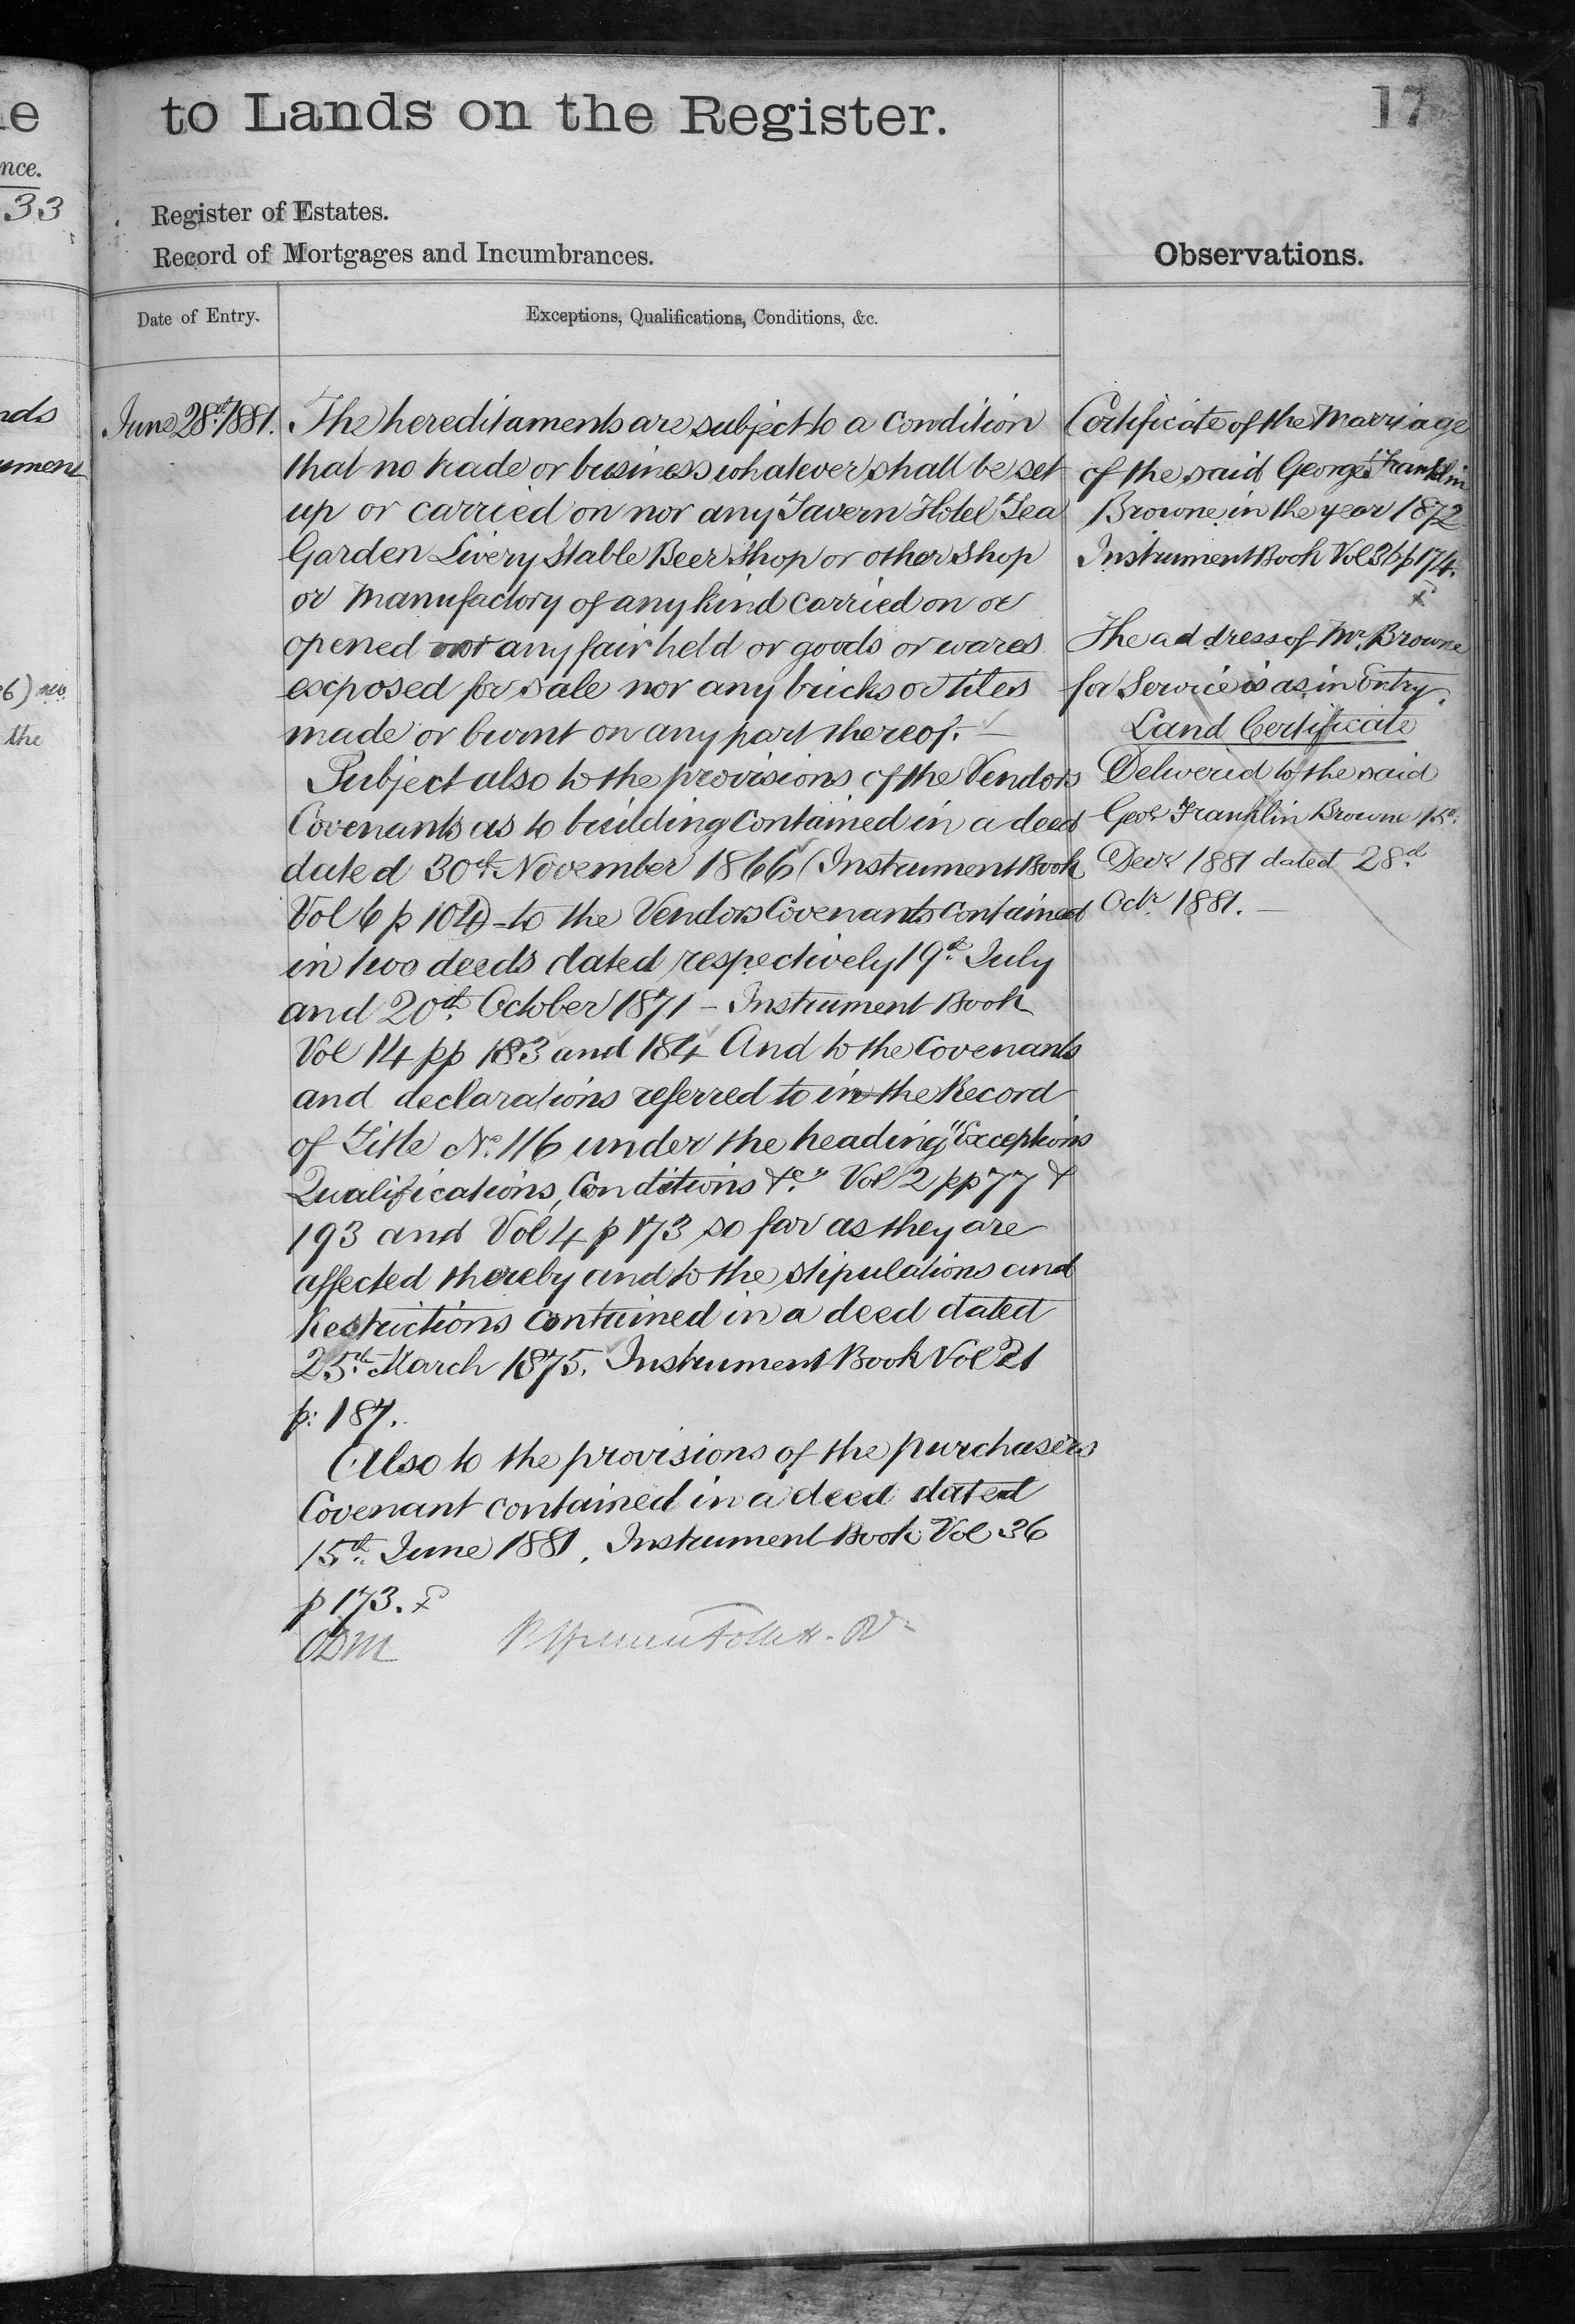 to Lands on the Register.
17
Register of Estates.
Record of Mortgages and Incumbrances.
Observations.
Date of Entry.
Exceptions, Qualifications, Conditions, &c.
June 28th 1881.
The hereditaments are subject to a condition
that no trade or business whatever shall be set
up or carried on nor any Tavern Hotel Tea
Garden Livery Stable Beer Shop or other Shop
or Manufactory of any kind carried on or
opened nor any fair held or goods or wares
exposed for sale nor any bricks or tiles
made or burnt on any part thereof. —
Subject also to the provisions of the Vendors
Covenants as to building contained in a deed
dated 30th November 1866 (Instrument Book
Vol 6 p 104) – to the Vendors Covenants contained
in two deeds dated respectively 19th July
and 20th October 1871 – Instrument Book
Vol 14 pp 183 and 184 And to the Covenants
and declarations referred to in the Record
of Title No. 116 under the heading "Exceptions
Qualifications, Conditions &c." Vol 2 pp 77 &
193 and Vol 4 p 173 so far as they are
affected thereby and to the stipulations and
Restrictions contained in a deed dated
25th March 1875. Instrument Book Vol 21
p: 187.
Also to the provisions of the purchasers
Covenant contained in a deed dated
15th June 1881, Instrument Book Vol 36
p 173. x
Certificate of the Marriage
of the said George Franklin
Browne in the year 1872
Instrument Book Vol 36 p 174.
x
The address of Mr. Browne
for Service is as in Entry.
Land Certificate
Delivered to the said
Geoe Franklin Browne 15th
Decr 1881 dated 28th
Octr 1881. —
e
nce.
33
nds
ument
the